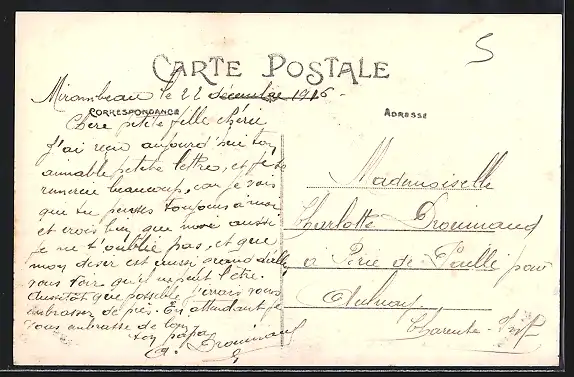 5
CARTE POSTALE
Mirambeau le 22 décembre 1916 -
CORRESPONDANCE
ADRESSE
Chère petite fille chérie
J'ai reçu aujourd'hui ton
aimable petite lettre, et je te
remercie beaucoup, car je vois
que tu penses toujours à moi
et crois bien que moi aussi
je ne t'oublie pas, et que
mon désir est aussi grand d'aller
vous voir qu'il en peut l'être.
Aussitôt que possible j'irai vous
embrasser de près. En attendant je
vous embrasse de loin
ton papa
Drouinaud
Mademoiselle
Charlotte Drouinaud
à de par
Aulnay
Charente - Infre